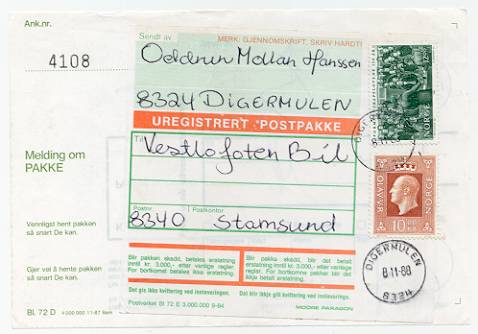 Ank.nr.
4108
Sendt av
MERK: GJENNOMSKRIFT, SKRIV HARDT!
Oddrun Mollan Hanssen
8324 DIGERMULEN
UREGISTRERT POSTPAKKE
Til
Vestlofoten Bil
Postnr.
Postkontor
8340 Stamsund
Melding om
PAKKE
Vennligst hent pakken
så snart De kan.
Gjør vel å hente pakken
så snart De kan.
Bl. 72 D 4 000 000 11-87
Blir pakken skadd, betales
erstatning inntil kr. 3.000,- etter vanlige regler.
For bortkomst betales ikke erstatning.
Blir pakken skadd, blir det betalt
erstatning inntil kr. 3.000,- etter vanlege
reglar. For bortkommen pakke blir det
ikkje betalt erstatning.
Det gis ikke kvittering ved innleveringen.
Det blir ikkje gitt kvittering ved innleveringa.
Postverket Bl 72 E 3.000.000 9-84
MOORE PARAGON
NORGE
OLAV V R
NORGE
10 00
DIGERMULEN
8.11.88